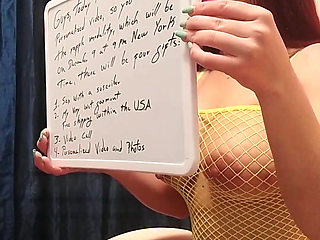 Guys, Today
Personalized video, so you
the raffle modality, which will be
on December 9 at 9 PM New York's
Time, there will be your gifts:
1. Sex with a suscriber
2. My Very wet garment
free shipping within the USA
3. Video Call
4. Personalized Video and Photos